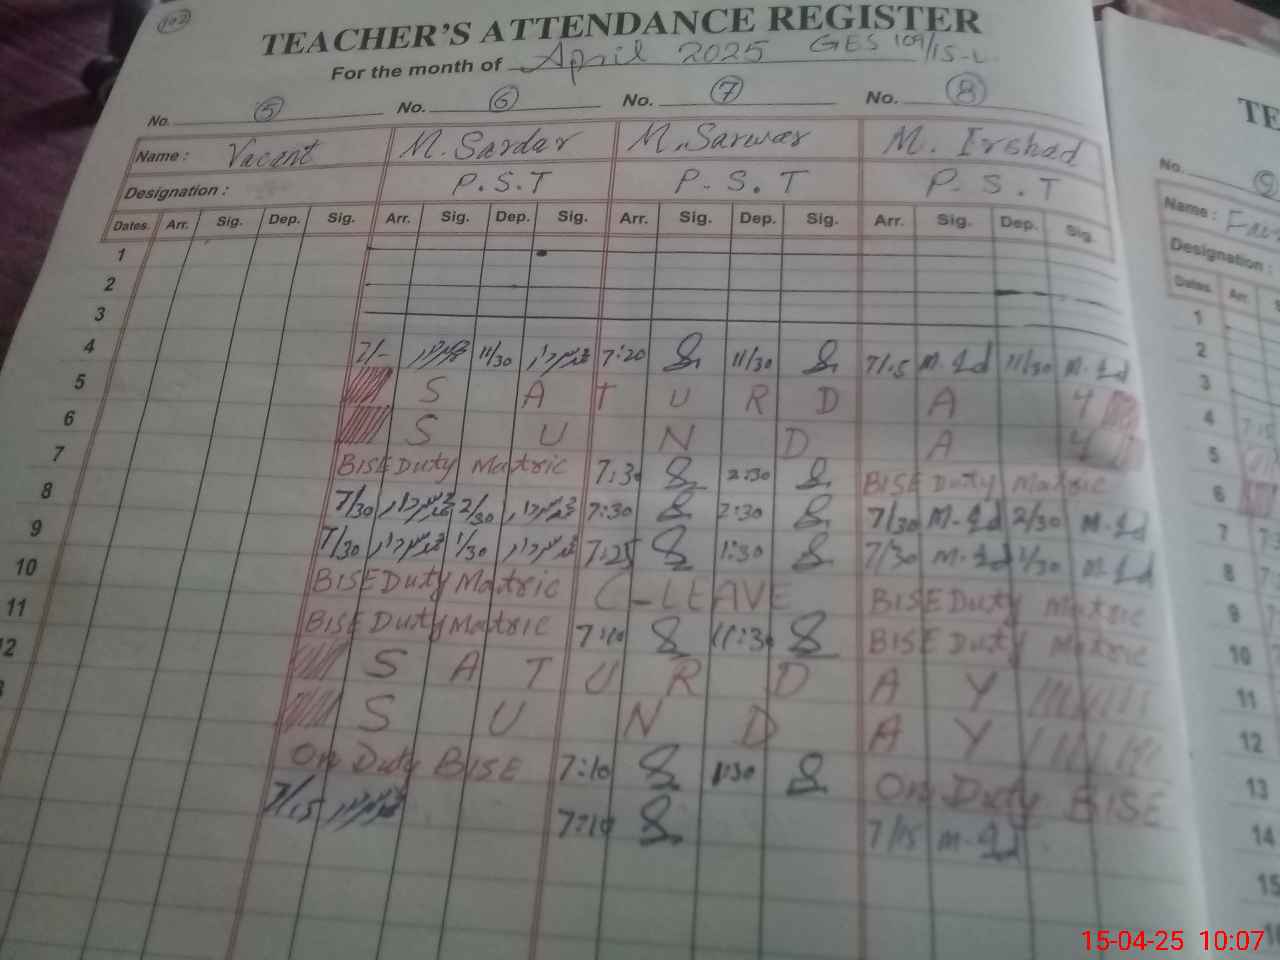 102
TEACHER'S ATTENDANCE REGISTER
For the month of April 2025 GES 109/15-L
No. 5 No. 6 No. 7 No. 8
Name : Vacant M. Sardar M. Sarwar M. Irshad
Designation : P.S.T P.S.T P.S.T
Dates. Arr. Sig. Dep. Sig. Arr. Sig. Dep. Sig. Arr. Sig. Dep. Sig. Arr. Sig. Dep. Sig.
1
2
3
4 7/- 11/30 7:20 11/30 7/15 M. 11/30 M.
5 S A T U R D A Y
6 S U N D A Y
7 BISE Duty Matric 7:30 2:30 BISE Duty Matric
8 7/30 2/30 7:30 2:30 7/30 M. 2/30 M.
9 7/30 1/30 7:25 1:30 7/30 M. 1/30 M.
10 BISE Duty Matric C-LEAVE BISE Duty Matric
11 BISE Duty Matric 7:10 11:30 BISE Duty Matric
12 S A T U R D A Y
S U N D A Y
On Duty BISE 7:10 1:30 On Duty BISE
7/15 7:10 7/15 M.
TE
No. 9
Name :
Designation :
Dates. Arr.
1
2
3
4 7:15
5
6
7
8
9
10
11
12
13
14
15
15-04-25 10:07